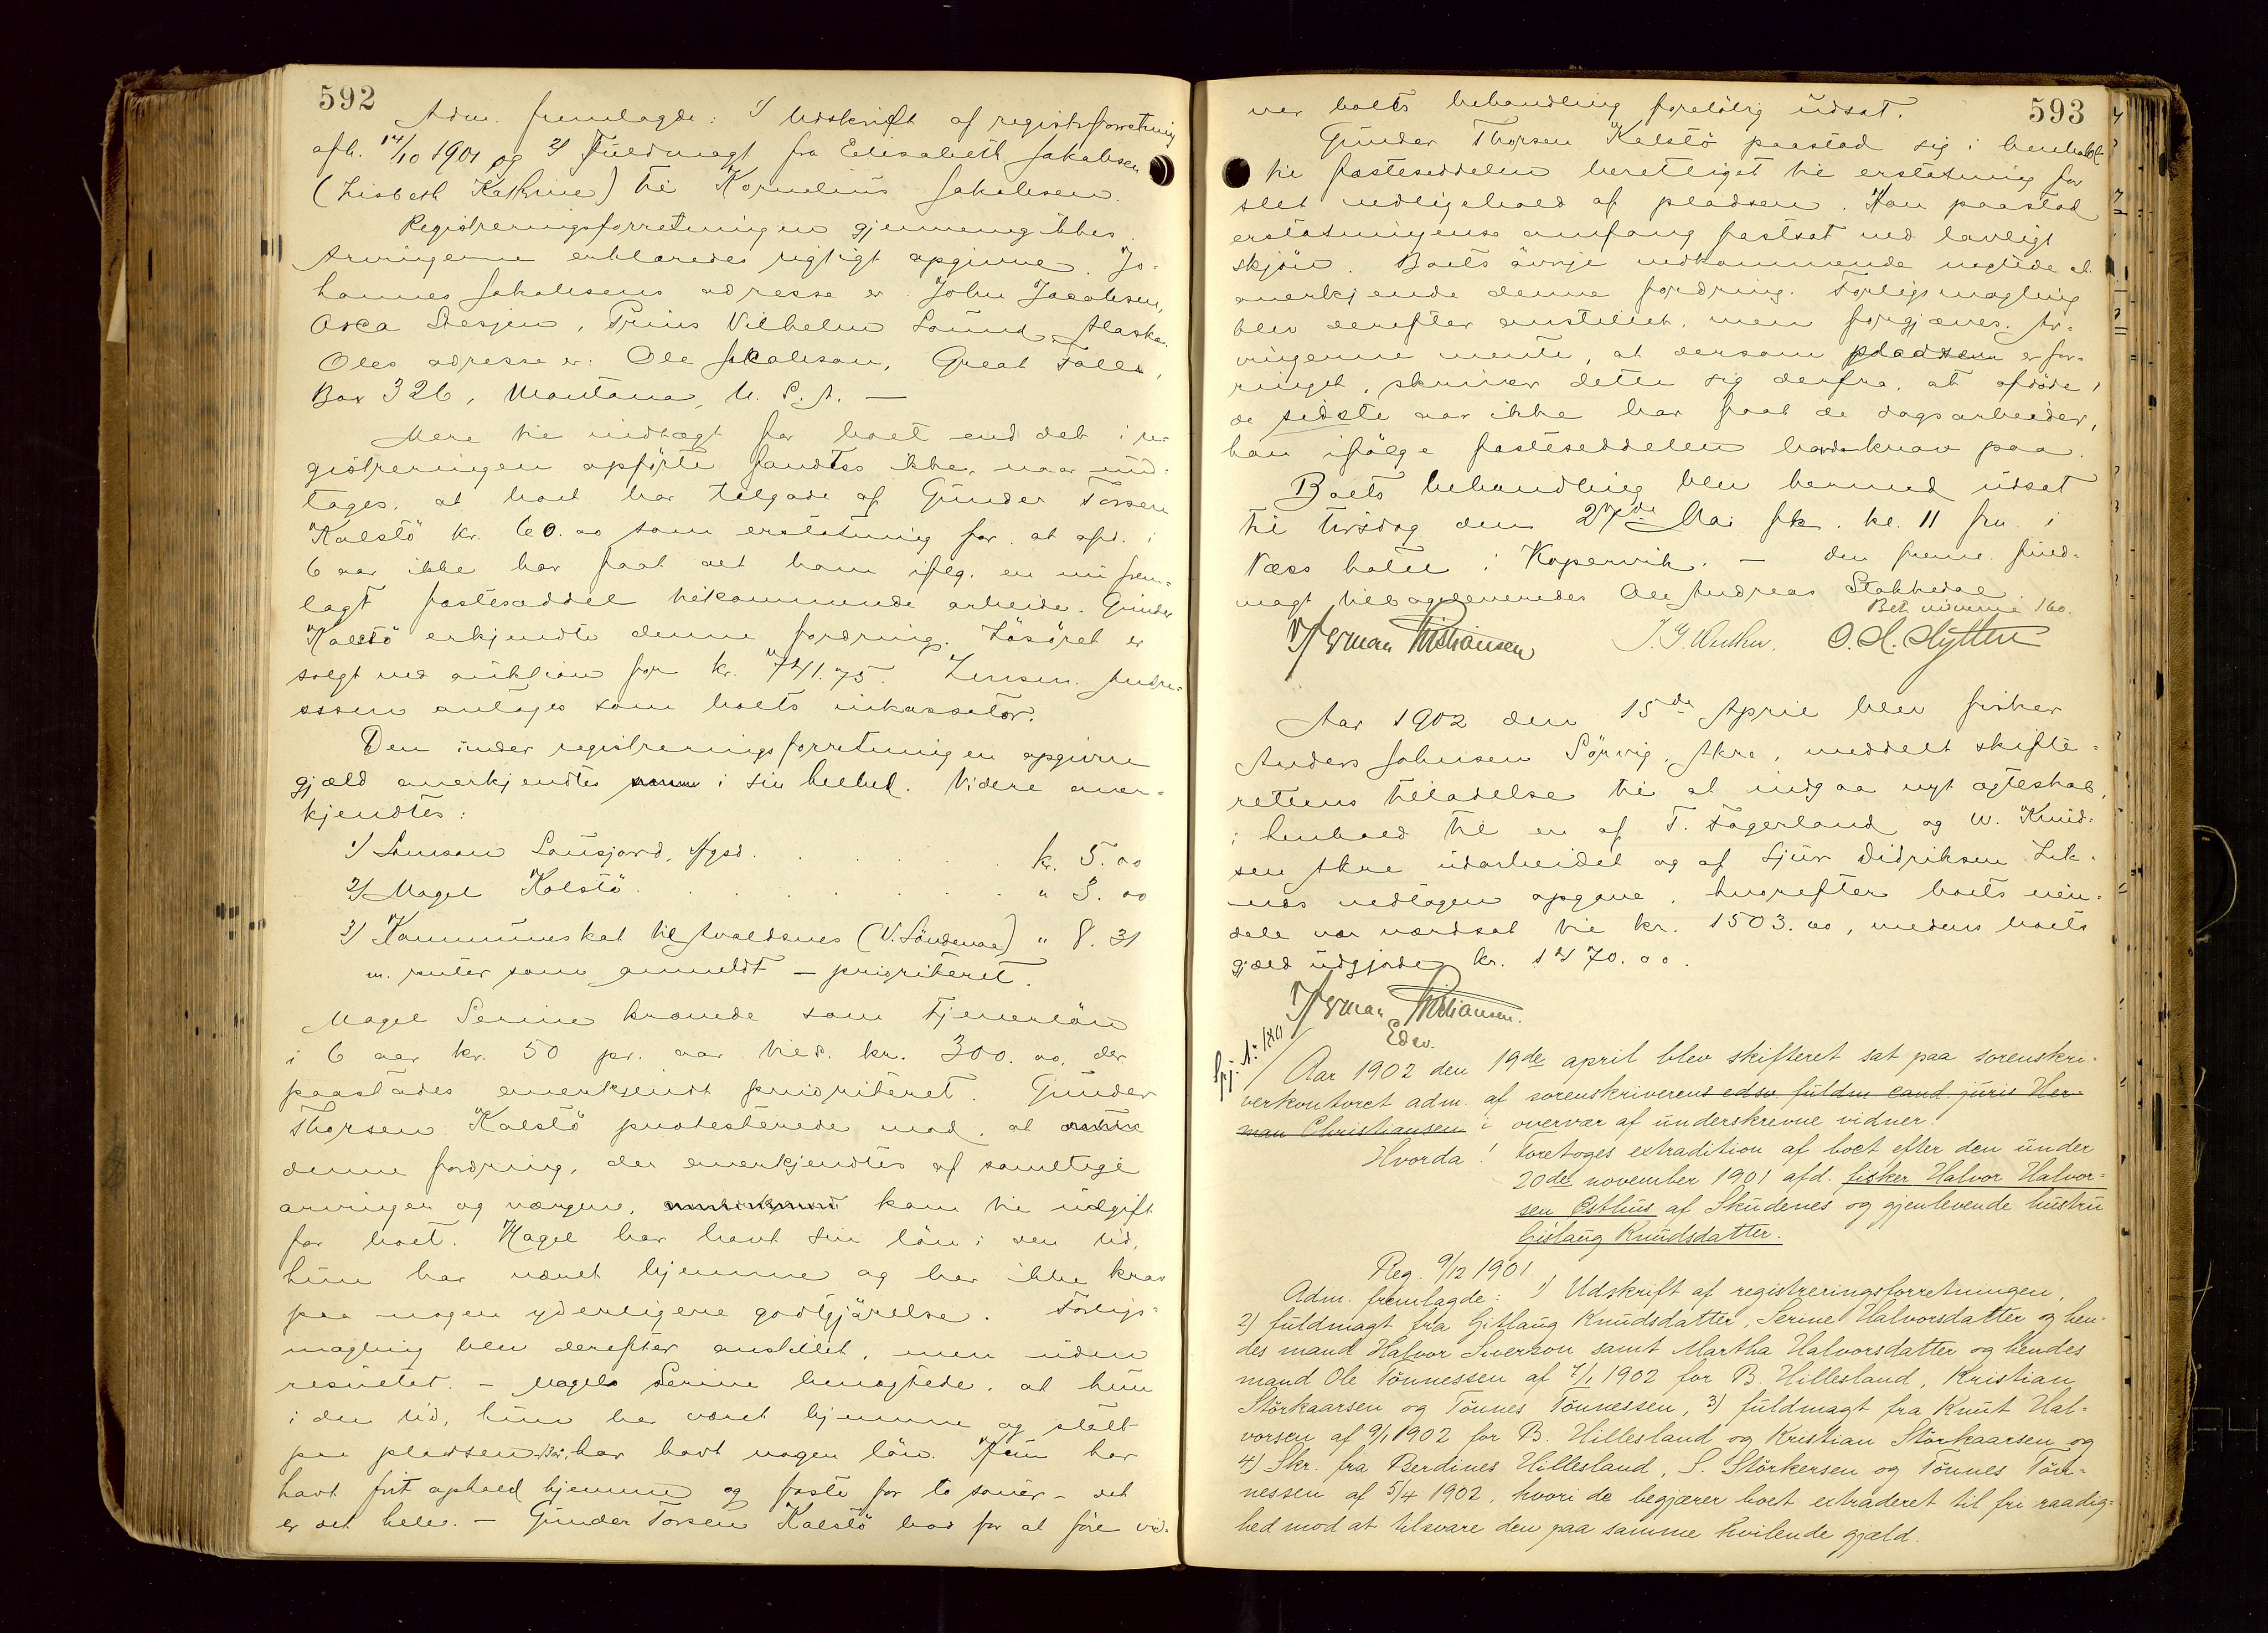 592
Adm. fremlagde: 1) Udskrift af registrforretning
afh. 14/10 1901 og 2) Fuldmagt fra Elisabeth Jakobsen
(Lisbeth Kathrine) til Kornelius Jakobsen.
Registreringsforretningen gjennemgikkes.
Arvingerne erklæredes rigtigt opgivne. Jo-
hannes Jakobsens adresse er John Jacobsen,
Orca Stesjen, Prins Vilhelm Sound, Alaska.
Oles adresse er: Ole Jakobson, Great Falls,
Box 326, Montana, U. S. A. —
Mere til indtægt for boet end det i re-
gistreringen opførte fandtes ikke, naar und-
tages, at boet har tilgode af Gunder Torsen
Kalstö kr. 60.00 som erstatning for, at afd. i
6 aar ikke har faat det ham iflg. en nu frem-
lagt fæsteseddel tilkommende arbeide. Gunder
Kalstö erkjendte denne fordring. Lösöret er
solgt ved auktion for kr. 741.75. Lensm. Andre-
assen antages som boets inkassator.
Den under registreringsforretningen opgivne
gjæld anerkjendtes i sin helhed. Videre aner-
kjendtes:
1) Samson Sausjord, Hgsd. kr. 5.00
2) Magel Kalstö. " 3.00
3) Kommuneskat til Avaldsnes (V. Söndenaa) " 8.31
m. renter som anmeldt — prioriteret.
Magel Serine krævede som tjenerlön
i 6 aar kr. 50 pr. aar tils. kr. 300.00, der
paastodes anerkjendt prioriteret. Gunder
Thorsen Kalstö protesterede mod, at
denne fordring, der anerkjendtes af samtlige
arvinger og værgen, kom til udgift
for boet. Magel har havt sin lön i den tid,
hun har været hjemme og har ikke krav
paa nogen yderligere godtgjörelse. Forligs-
mægling blev derefter anstillet, men uden
resultat. — Magel Serine benægtede, at hun
i den tid, hun har været hjemme og stelt
paa pladsen har havt nogen lön. Hun har
havt frit ophold hjemme og föste for to sauer — det
er det hele. — Gunder Torsen Kalstö bad for at före vid-
593
ner boets behandling forelöbig udsat.
Gunder Thorsen Kalstö paastod sig i henhold
til fæsteseddelen berettiget til erstatning for
slet vedligehold af pladsen. Han paastod
erstatningens omfang fastsat ved lovligt
skjön. Boets övrige vedkommende nægtede at
anerkjende denne fordring. Forligsmægling
blev derefter anstillet, men forgjæves. Ar-
vingerne mente, at dersom pladsen er for-
ringet, skriver dette sig derfra, at afdöde i
de sidste aar ikke har faat de dagsarbeider,
han ifölge fæsteseddelen havde krav paa.
Boets behandling blev hermed udsat
til tirsdag den 27de Mai fk. kl. 11 fm. i
Næss hotel i Kopervik. — den freml. fuld-
magt tilbageleveredes Ole Andreas Stokkedal.
Bet. vidnerne 1.60.
Herman Christiansen O. H. Hytten
Aar 1902 den 15de April blev fisker
Anders Johnsen Sörvig, Akre, meddelt skifte-
rettens tilladelse til at indgaa nyt ægteskab,
i henhold til en af T. Fagerland og W. Knud-
sen Akre udarbeidet og af Sjur Didriksen Lik-
næs vedtagen opgave, hvorefter boets eien-
dele var værdsat til kr. 1503.00, medens boets
gjæld udgjorde kr. 1470.00.
Herman Christiansen.
Edsv.
Spj. No: 180
Aar 1902 den 19de april blev skifteret sat paa sorenskri-
verkontoret adm. af sorenskriverens edsv. fuldm cand. juris Her-
man Christiansen i overvær af underskrevne vidner.
Hvorda! Foretoges extradition af boet efter den under
20de november 1901 afd. fisker Halvor Halvor-
sen Østhus af Skudenes og gjenlevende hustru
Gislaug Knudsdatter.
Reg. 9/12 1901
Adm. fremlagde: 1) Udskrift af registreringsforretningen,
2) fuldmagt fra Gitlaug Knudsdatter, Serine Halvorsdatter og hen-
des mand Halvor Siverson samt Martha Halvorsdatter og hendes
mand Ole Tönnessen af 7/1 1902 for B. Hillesland, Kristian
Störkaarsen og Tönnes Tönnessen, 3) fuldmagt fra Knut Hal-
vorsen af 9/1 1902 for B. Hillesland og Kristian Störkaarsen og
4) Skr. fra Berdines Hillesland, S. Störkersen og Tönnes Tön-
nessen af 5/4 1902, hvori de begjærer boet extraderet til fri raadig-
hed mod at tilsvare den paa samme hvilende gjæld.